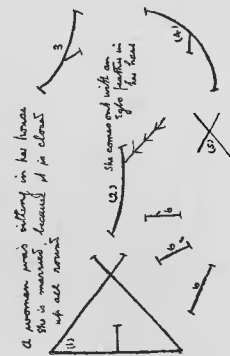 A woman was sitting in her house
She is married because it is closed
up all round
(1)
(2) She comes out with an
Egbo feather in
her head
3
(4)
(5)
6
6
a
6